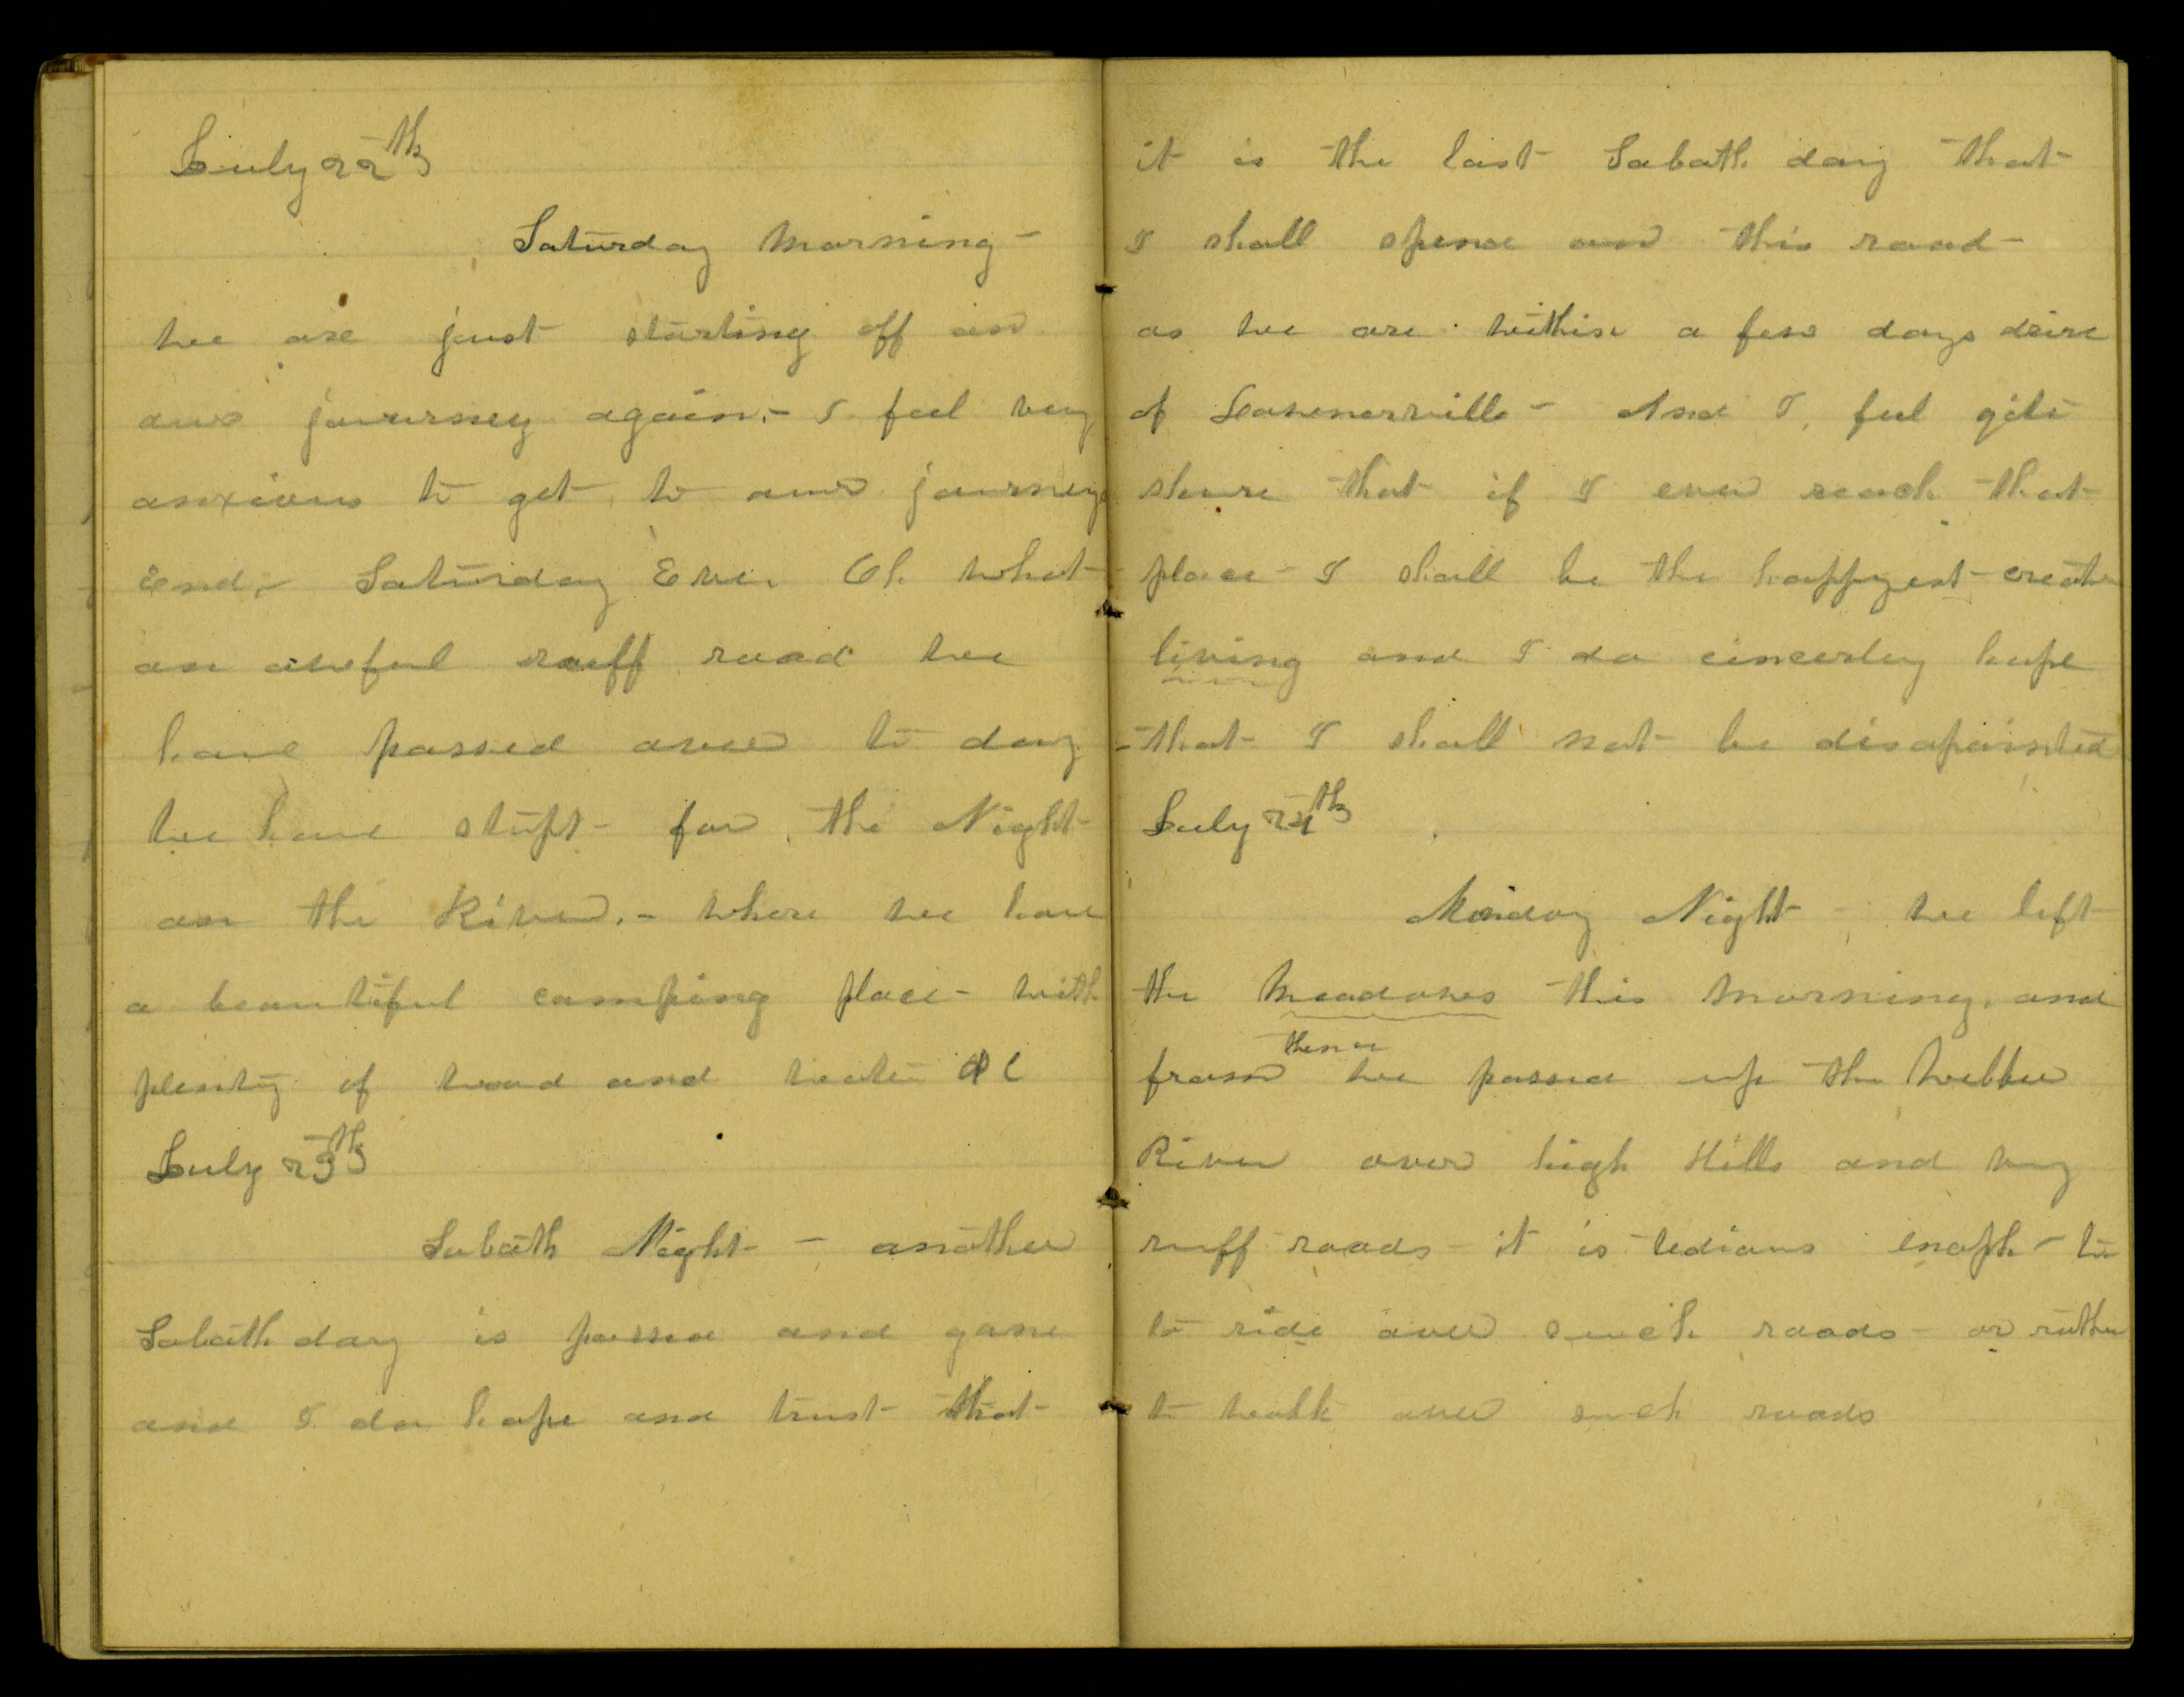 July 22th
Saturday Morning -
we are just starting off on
our jourrney again. - I feel very
anxious to get to our journeys
End. - Saturday Eve. Oh what
an awful ruff road we
have passed over to day
we have stopt - for the Night
on the River. - where we have
a beautiful camping place - with
plenty of wood and water &c
July 23th
Sabath Night - another
Sabath day is passed and gone
and I do hope and trust that
it is the last Sabath day that
I shall spend on this road -
as we are within a few days drive
of Connerville - And I feel quite
shure that if I ever reach that
place - I shall be the happyest creature
living and I do cincerley hope
that I shall not be disapointed
July 24th
Monday Night - we left
the Meadowes this Morning. and
from thence we passed up the Webber
River over high Hills and very
ruff roads - it is tedious enoph - to
to ride over such roads - or rather
to walk over such roads